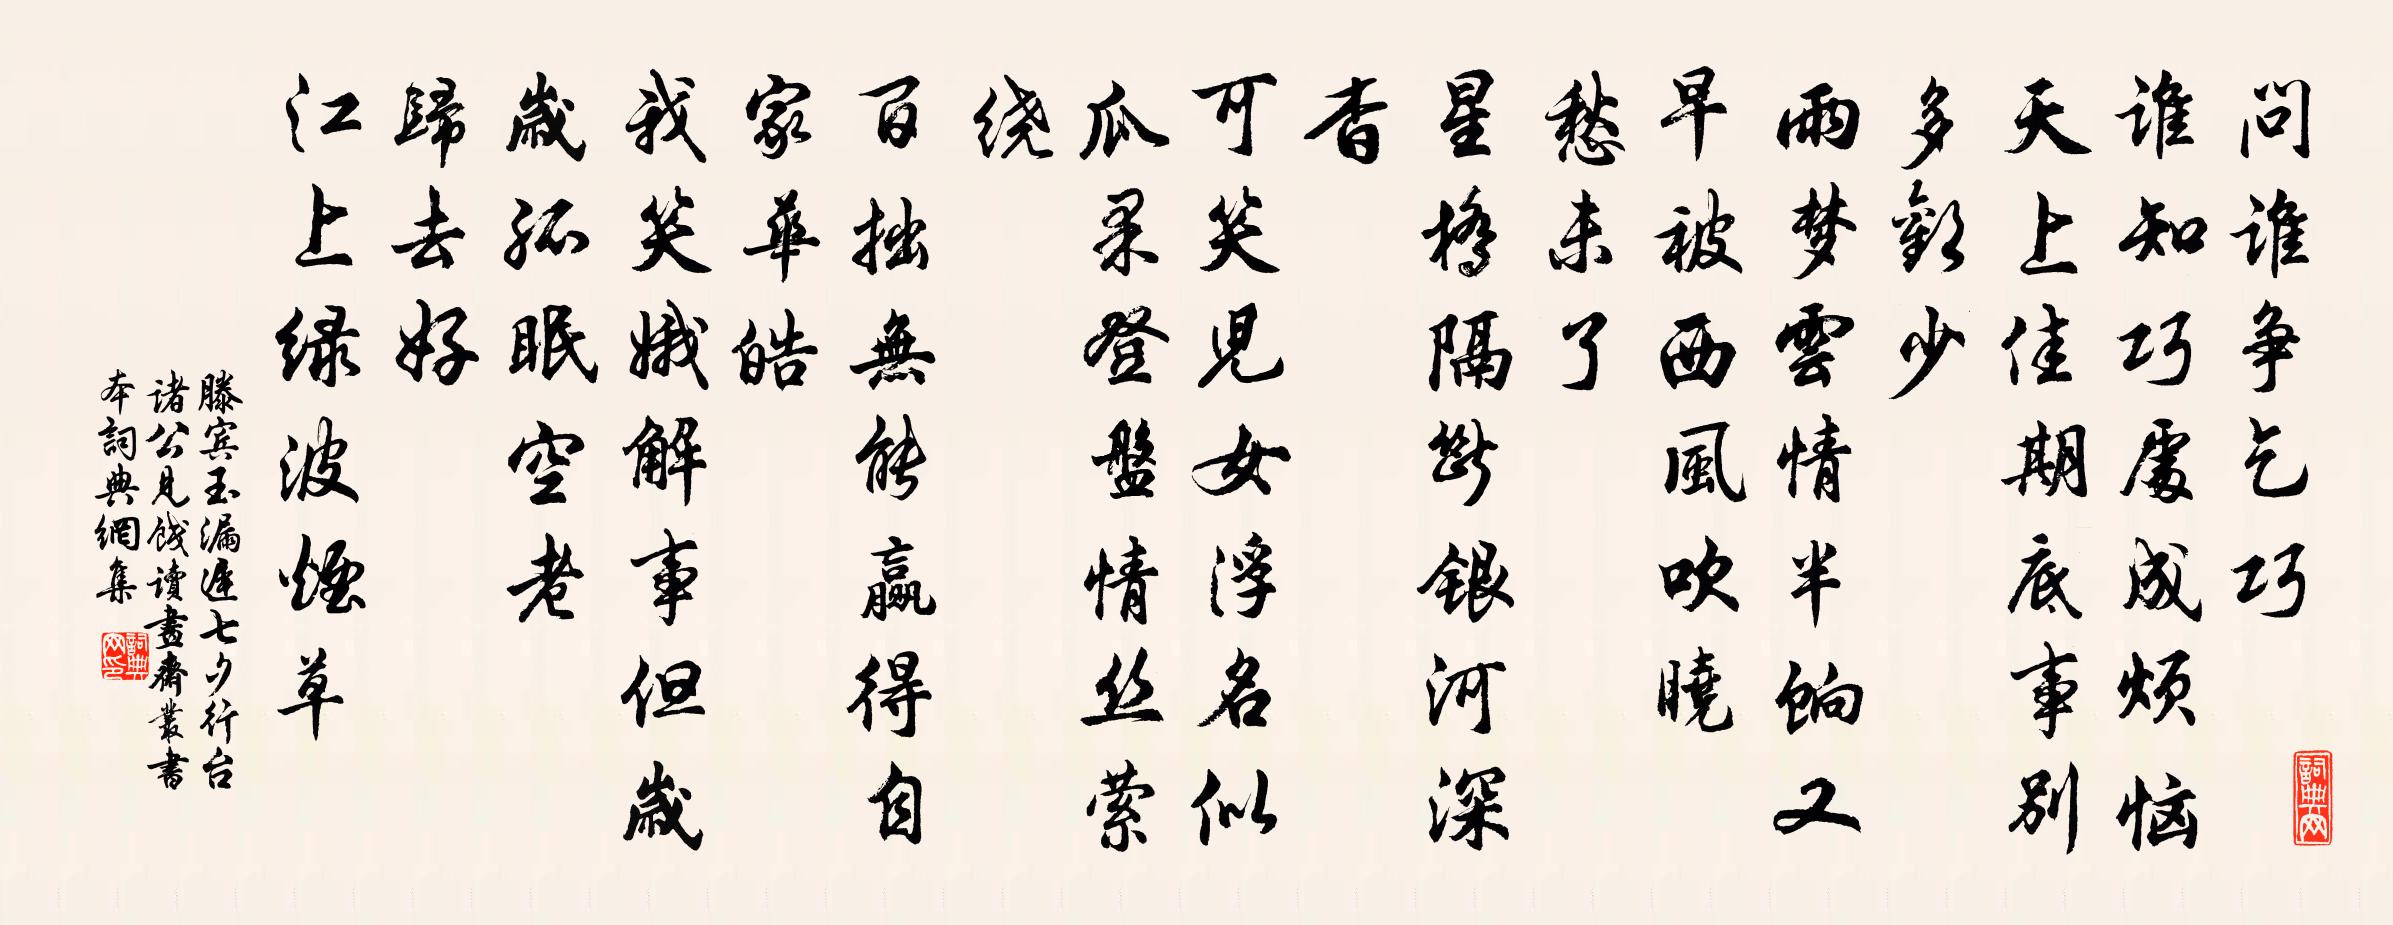 問谁争乞巧
谁知巧處成烦恼
天上佳期底事别
多歡少
雨梦雲情半餉又
早被西風吹曉
愁未了
星橋隔斷銀河深
杳
可笑兒女浮名似
瓜果登盤情丝萦
绕
百拙無能贏得自
家華皓
我笑娥解事但歲
歲孤眠空老
歸去好
江上绿波煙草
滕宾玉漏遲七夕行台
诸公見餞讀畫齋叢書
本詞典網集
詞典网
詞典网印